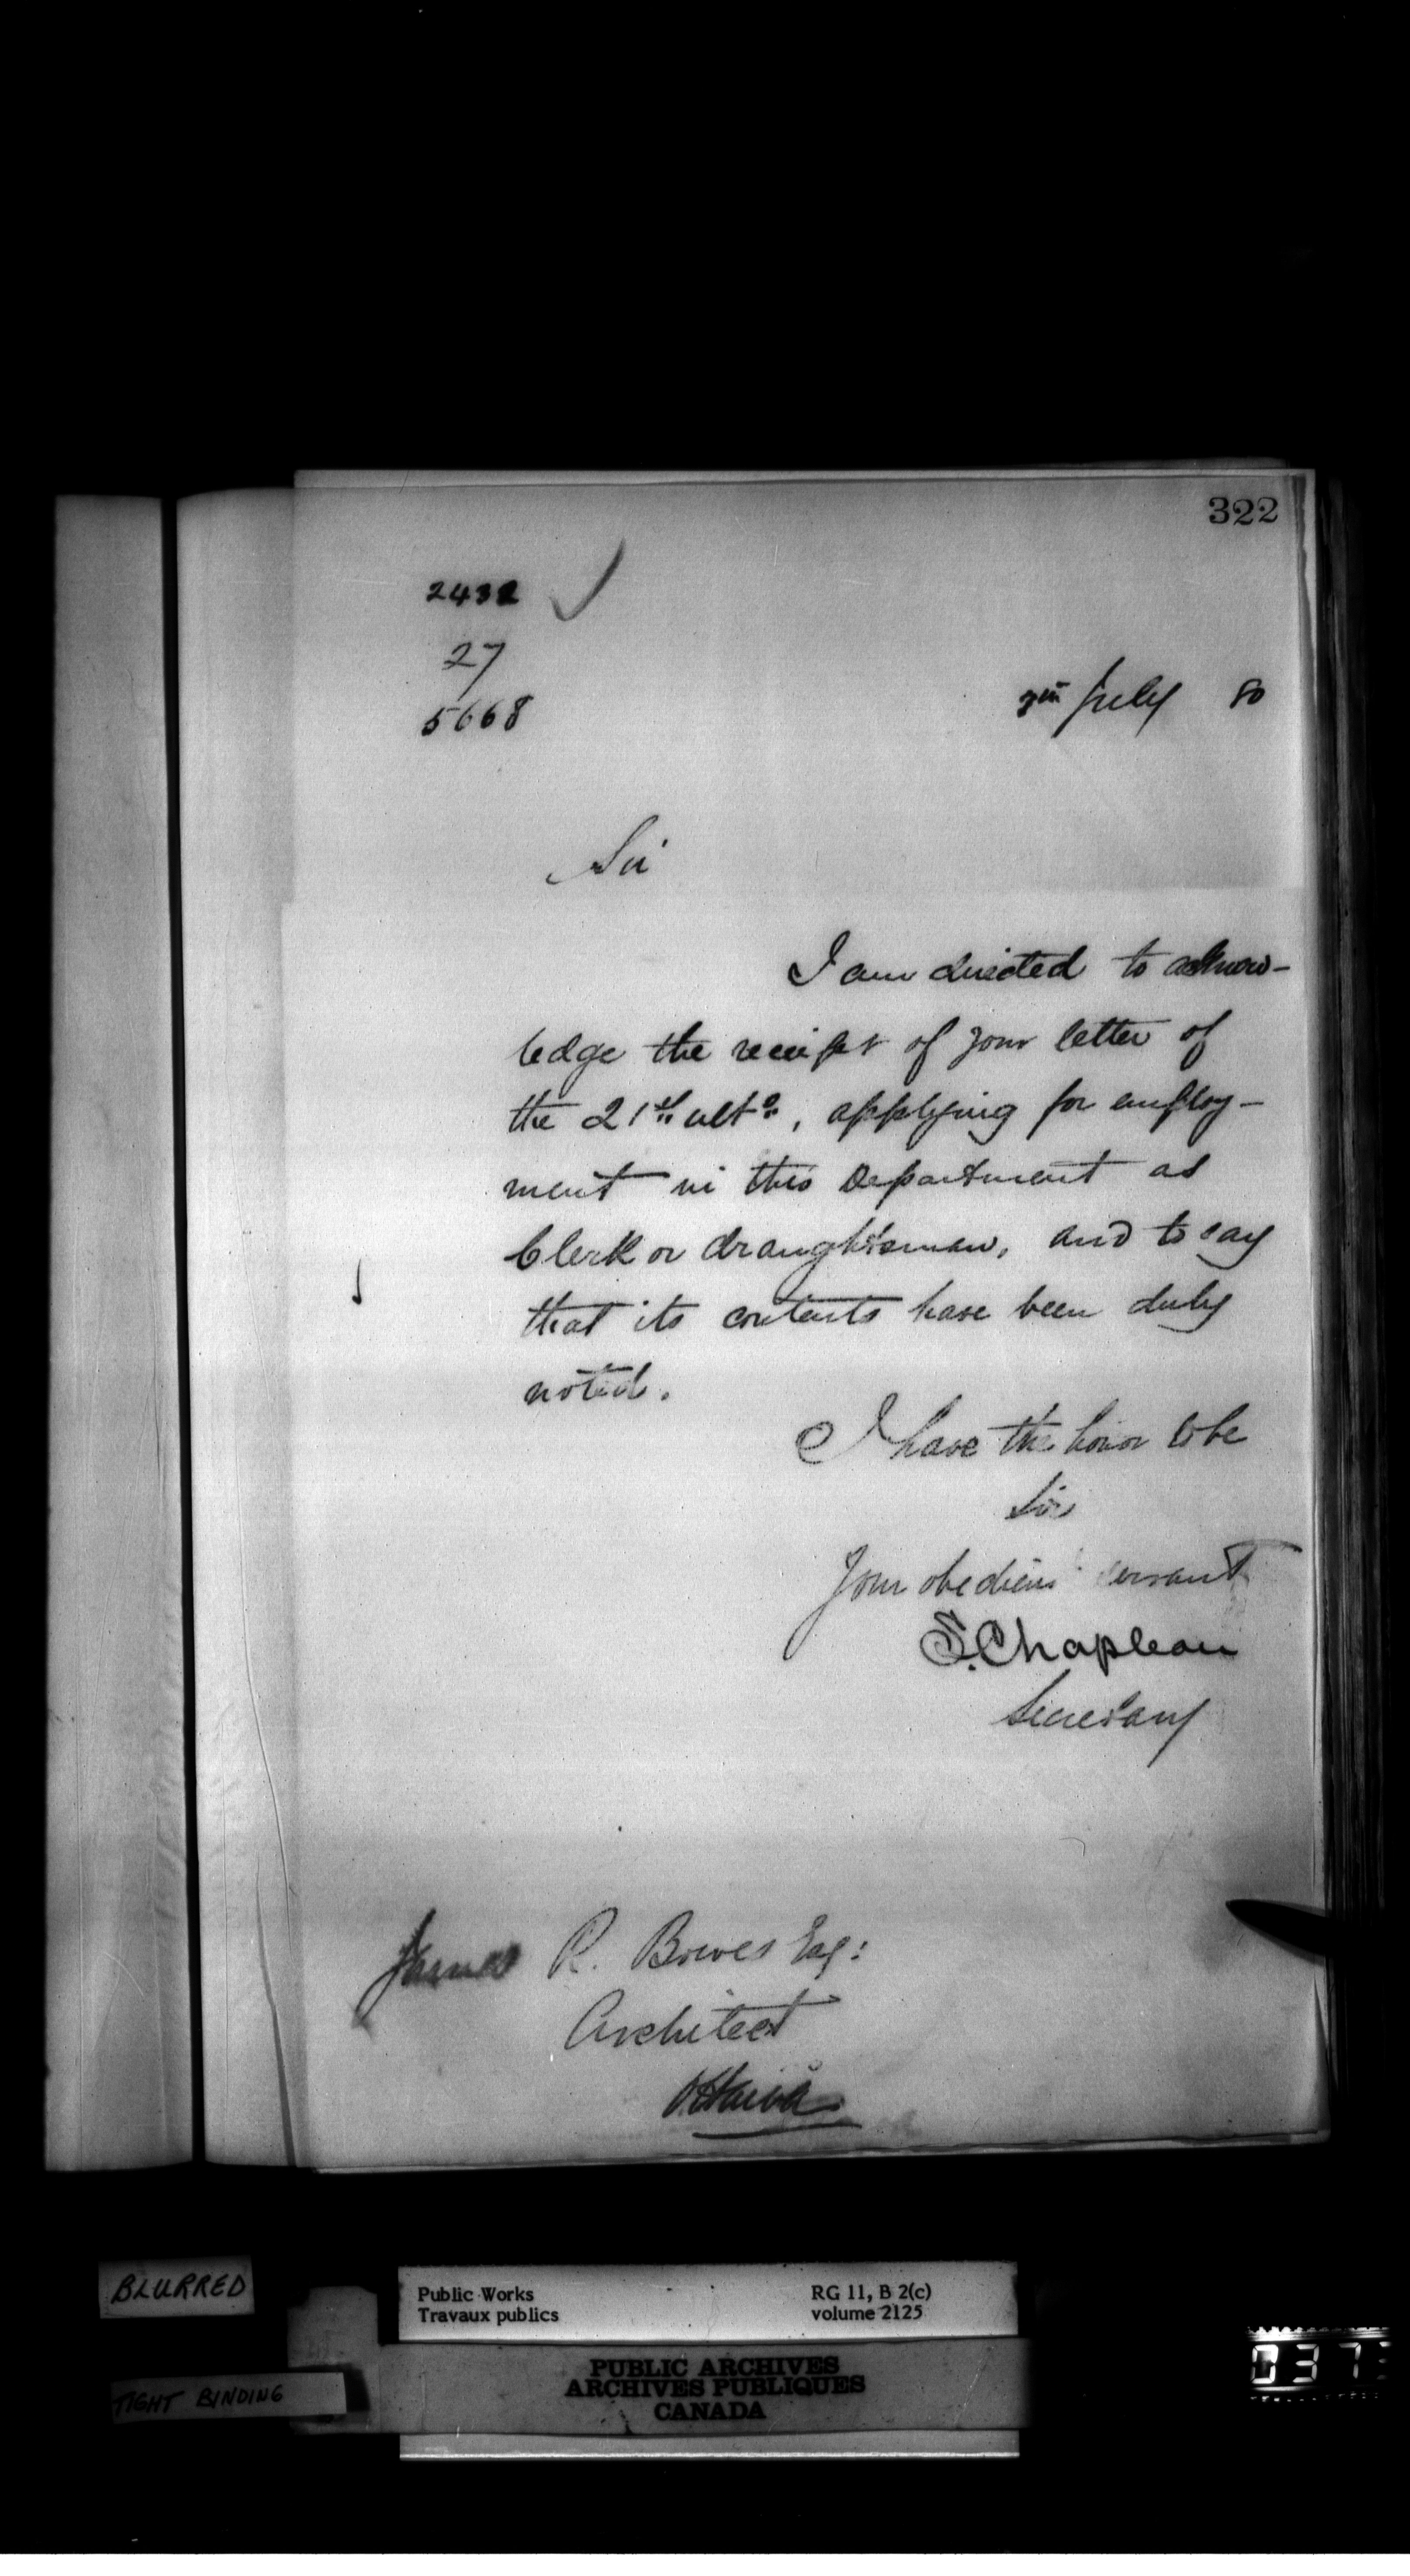 322
2432
27
5668
July 80
Sir
I am directed to acknow-
ledge the receipt of your letter of
the 21st ulto, applying for employ-
ment in this Department as
Clerk or draughtsman, and to say
that its contents have been duly
noted.
I have the honor to be
Sir
Your obedient servant
S. Chapleau
Secretary
James R. Bowes Esq:
Architect
Ottawa
BLURRED
Public Works
Travaux publics
RG 11, B 2(c)
volume 2125
TIGHT BINDING
PUBLIC ARCHIVES
ARCHIVES PUBLIQUES
CANADA
037